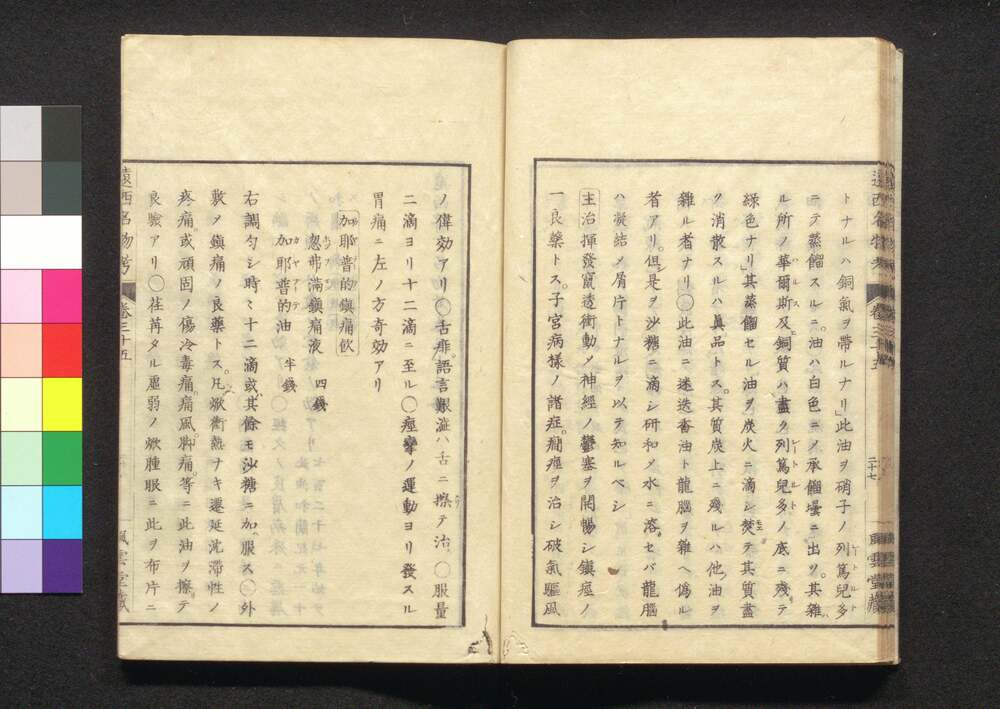 トナルハ銅氣ヲ帶ルナリ」此油ヲ硝子ノ列篤兒多
ニテ蒸餾スルニ。油ハ白色ニメ承餾壜ニ出ツ。其雜
ル所ノ華爾斯及銅質ハ盡ク列篤兒多ノ底ニ殘テ
綠色ナリ」其蒸餾セル油ヲ炭火ニ滴シ焚テ其質盡
ク消散スルハ眞品トス。其質炭上ニ殘ルハ他油ヲ
雜ル者ナリ〇此油ニ迷迭香油ト龍腦ヲ雜ヘ僞ル
者アリ。但是ヲ沙糖ニ滴シ研和メ水ニ溶セバ龍腦
ハ凝結メ屑片トナルヲ以テ知ルベシ
主治揮發竄透衝動メ神經ノ鬱塞ヲ開暢シ鎭痙ノ
一良藥トス。子宮病樣ノ諸症。癇痙ヲ治シ破氣驅風
ノ偉効アリ〇舌痱。語言艱澁ハ舌ニ擦テ治〇服量
二滴ヨリ十二滴ニ至ル〇痙攣ノ運動ヨリ發スル
胃痛ニ左ノ方奇効アリ
加耶普的鎭痛飮
忽弗滿鎭痛液 四錢
加耶普的油 半錢
右調勻シ時々十二滴或其餘モ沙糖ニ加服ス〇外
敷メ鎭痛ノ良藥トス。凡焮衝熱ナキ遷延沈滯性ノ
疼痛。或頑固ノ傷冷毒痛。痛風。脚痛。等ニ此油ヲ擦テ
良驗アリ〇荏苒タル虛弱ノ焮腫眼ニ此ヲ布片ニ
遠西名物考
卷三十五
二十七
風雲堂藏